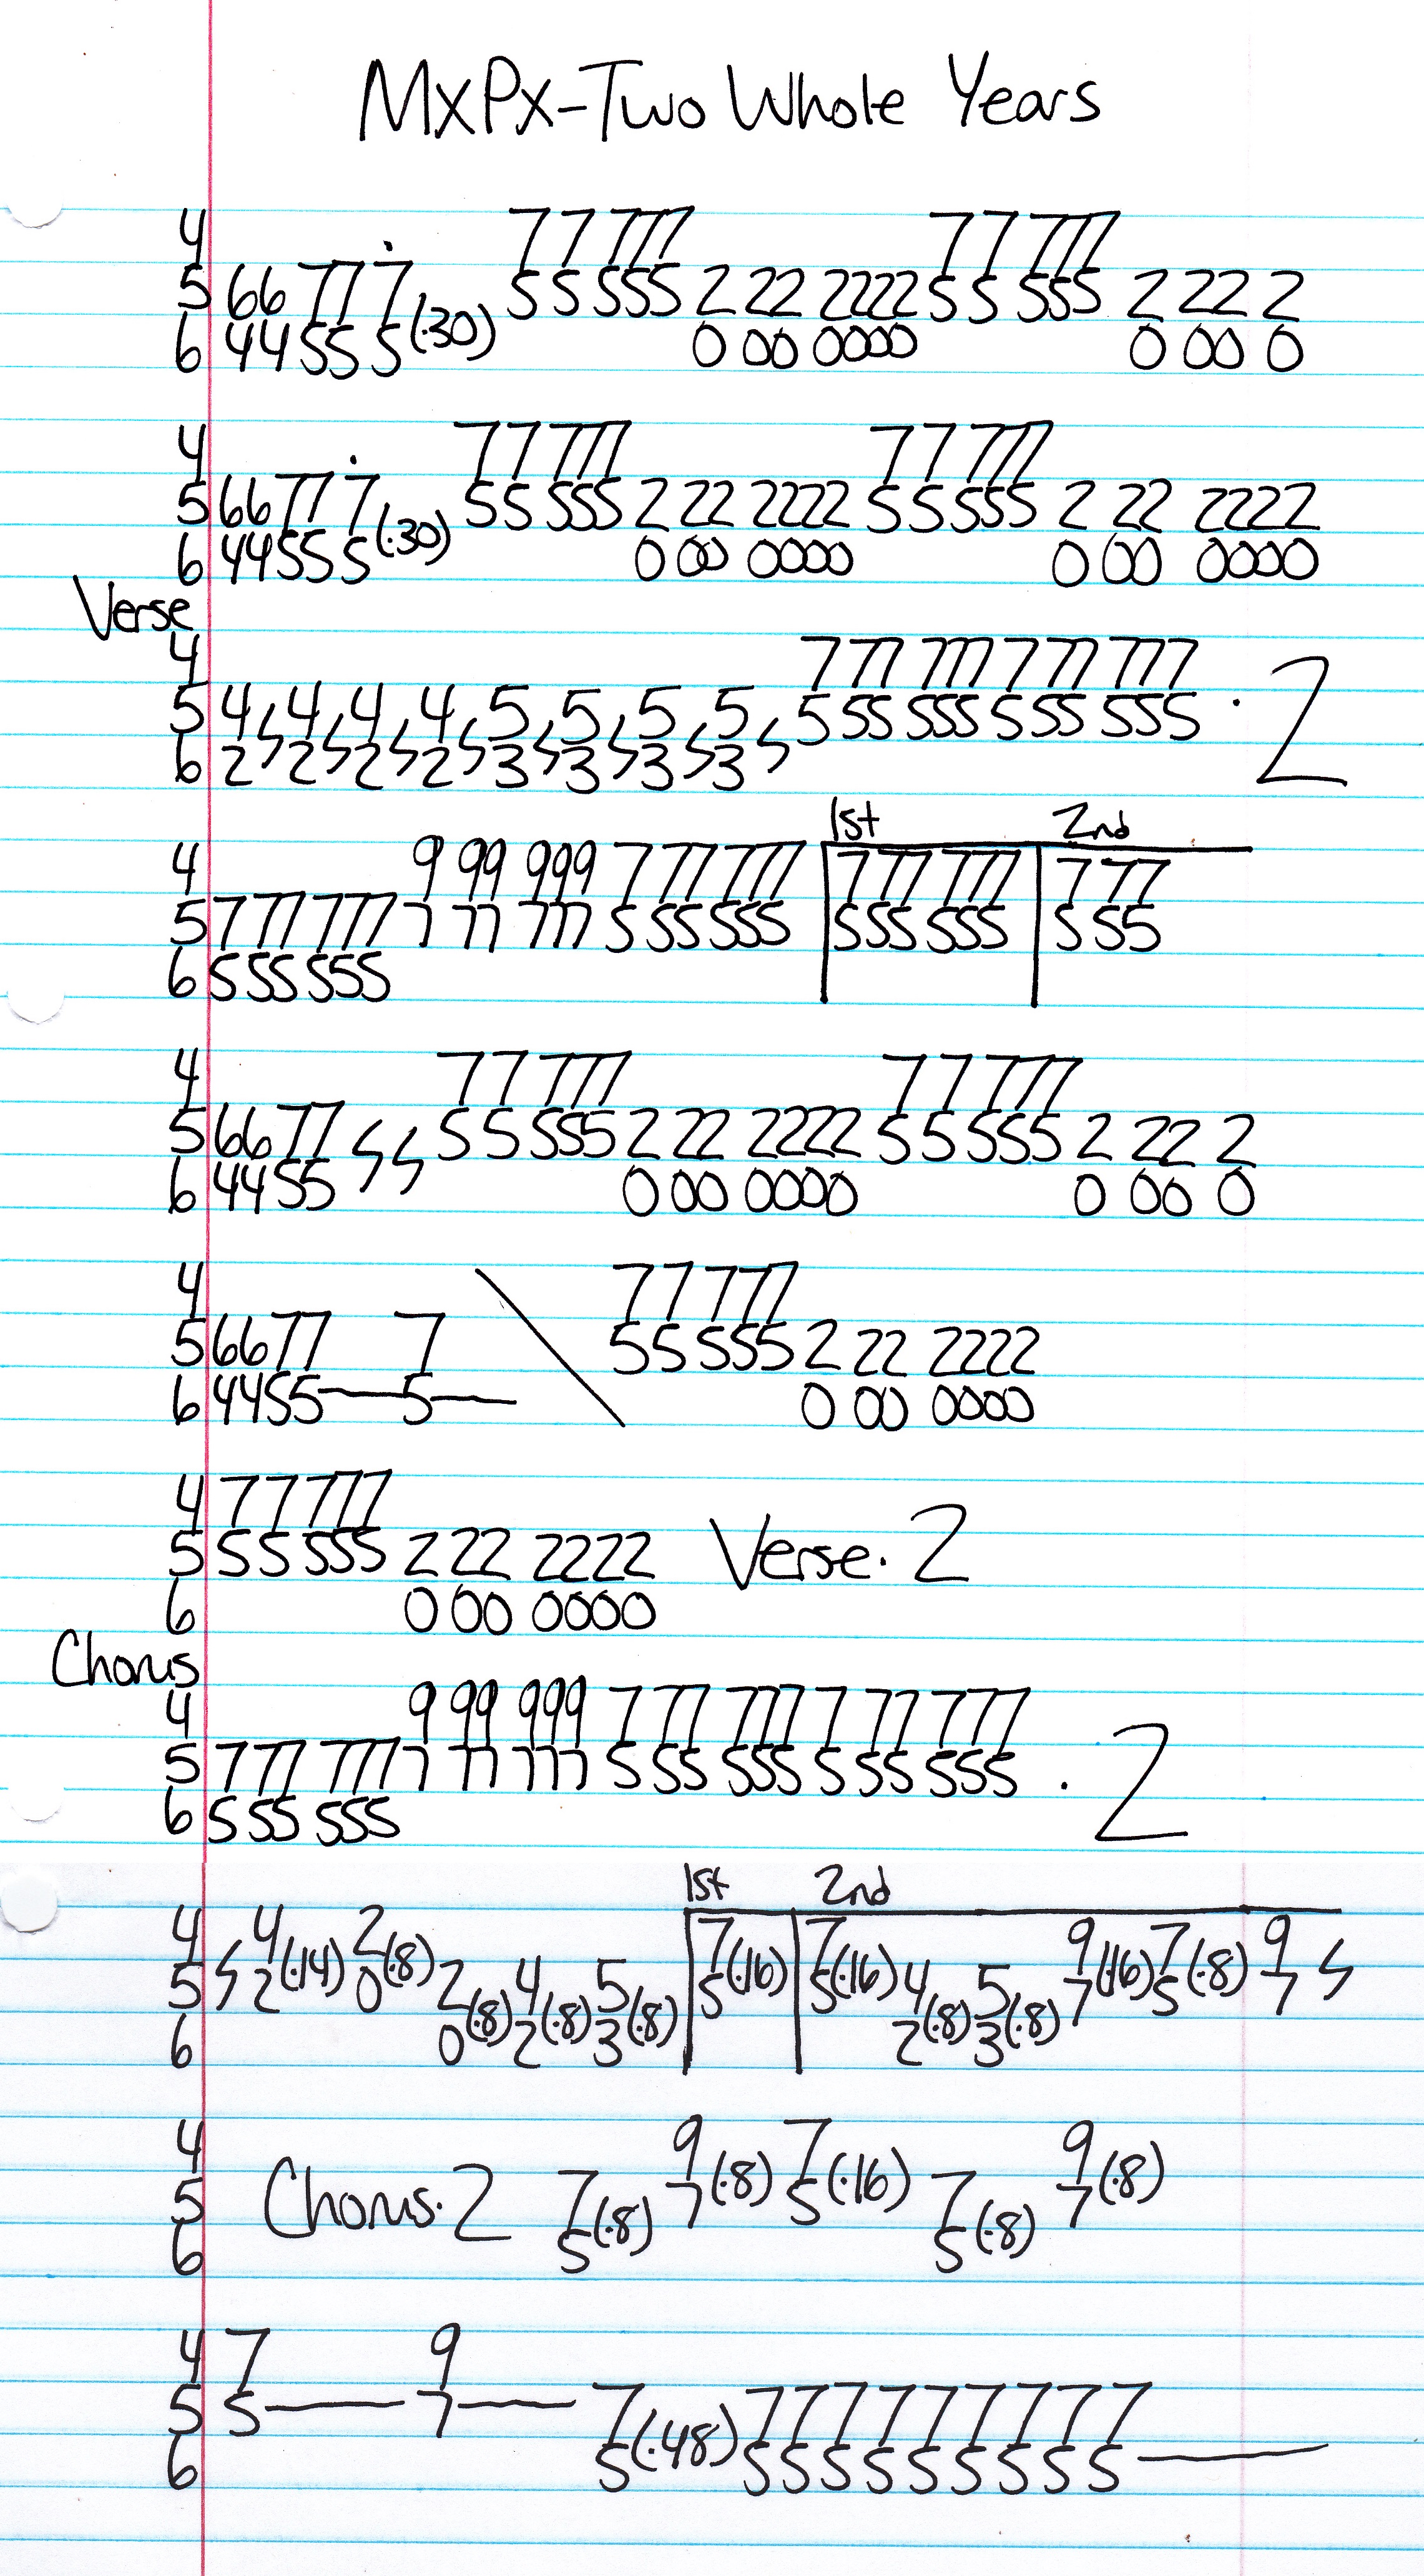 MxPx-Two Whole Years
4 7 7 777 7 7 777
5 66 77 7 (.30) 5 5 555 2 22 2222 5 5 555 2 222 2
6 44 55 5 0 00 0000 0 00 0
4 7 7 777 7 7 777
5 66 77 7 (.30) 55 555 2 22 2222 5 5 555 2 22 2222
6 44 55 5 0 00 0000 0 00 0000
Verse
4 7 77 777 7 77 777
5 4 4 4 4 5 5 5 5 5 55 555 5 55 555 . 2
6 2 2 2 2 3 3 3 3
1st 2nd
4 9 99 999 7 77 777 7 77 777 7 77
5 7 77 777 7 77 777 5 55 555 5 55 555 5 55
6 5 55 555
4 7 7 777 7 7 777
5 66 77 5 5 555 2 22 2222 5 5 555 2 22 2
6 44 55 0 00 0000 0 00 0
4 7 7 777
5 66 77 7 \ 55 555 2 22 2222
6 44 55—5— 0 00 0000
4 7 7 777
5 5 5 555 2 22 2222 Verse.2
6 0 00 0000
Chorus
4 9 99 999 7 77 777 7 77 777
5 7 77 777 7 77 777 5 55 555 5 55 555 . 2
6 5 55 555
1st 2nd
4 4 2 7 7 9 7 9
5 2(.14) 0(.8) 2 4 5 5(.16) 5(.16) 4 5 7(.16) 5(.8) 7
6 0(.8) 2(.8) 3(.8) 2(.8) 3(.8)
4 9 7 9
5 Chorus.2 7 7(.8) 5(.16) 7 7(.8)
6 5(.8) 5(.8)
4 7 9
5 5— 7— 7 7 7 7 7 7 7 7 7
6 5(.48) 5 5 5 5 5 5 5 5—